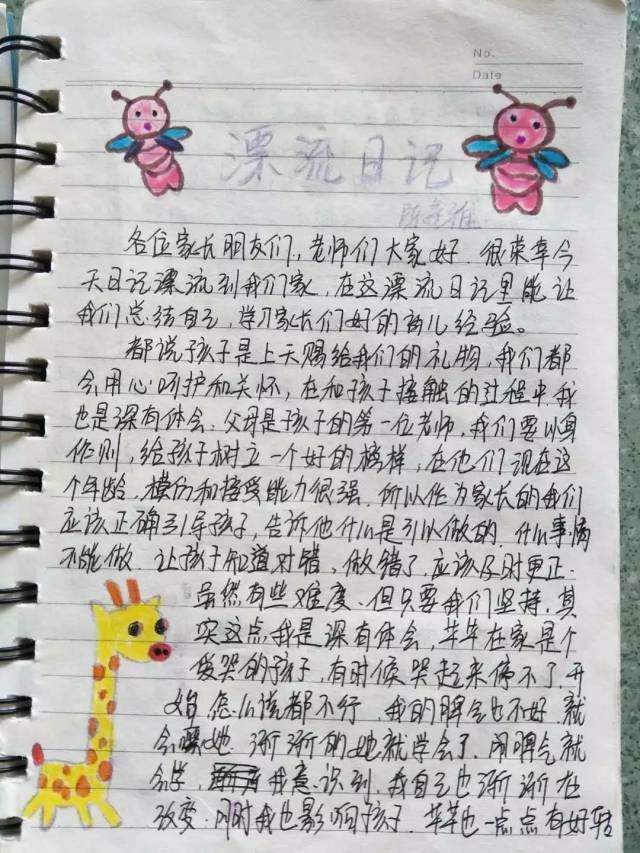 No.
Date
漂流日记
各位家长朋友们,老师们大家好.很荣幸今
天日记漂流到我们家,在这漂流日记里能让
我们总结自己,学习家长们好的育儿经验。
都说孩子是上天赐给我们的礼物,我们都
会用心呵护和关怀,在和孩子接触的过程中我
也是深有体会.父母是孩子的第一位老师,我们要以身
作则,给孩子树立一个好的榜样,在他们现在这
个年龄.模仿和接受能力很强.所以作为家长的我们
应该正确引导孩子,告诉他什么是可以做的.什么事情
不能做.让孩子知道对错、做错了应该及时更正.
虽然有些难度.但只要我们坚持,其
实这点我是深有体会,芊芊在家是个
爱哭的孩子,有时候哭起来停不了.开
始怎么说都不行.我的脾气也不好.就
会嘿她.渐渐的她就学会了.闹脾气就
会学,我意识到.我自己也渐渐在
改变.同时我也影响孩子.芊芊也一点点有好转